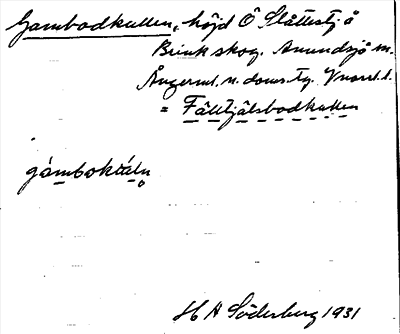 Gambodkullen, höjd Ö Slåttestj. å
Brink skog. Anundsjö sn.
Ångerml. n. doms. tg. Vnorrl. l.
= Fälltjälsbodkullen
gámbokúln
H A Söderberg 1931